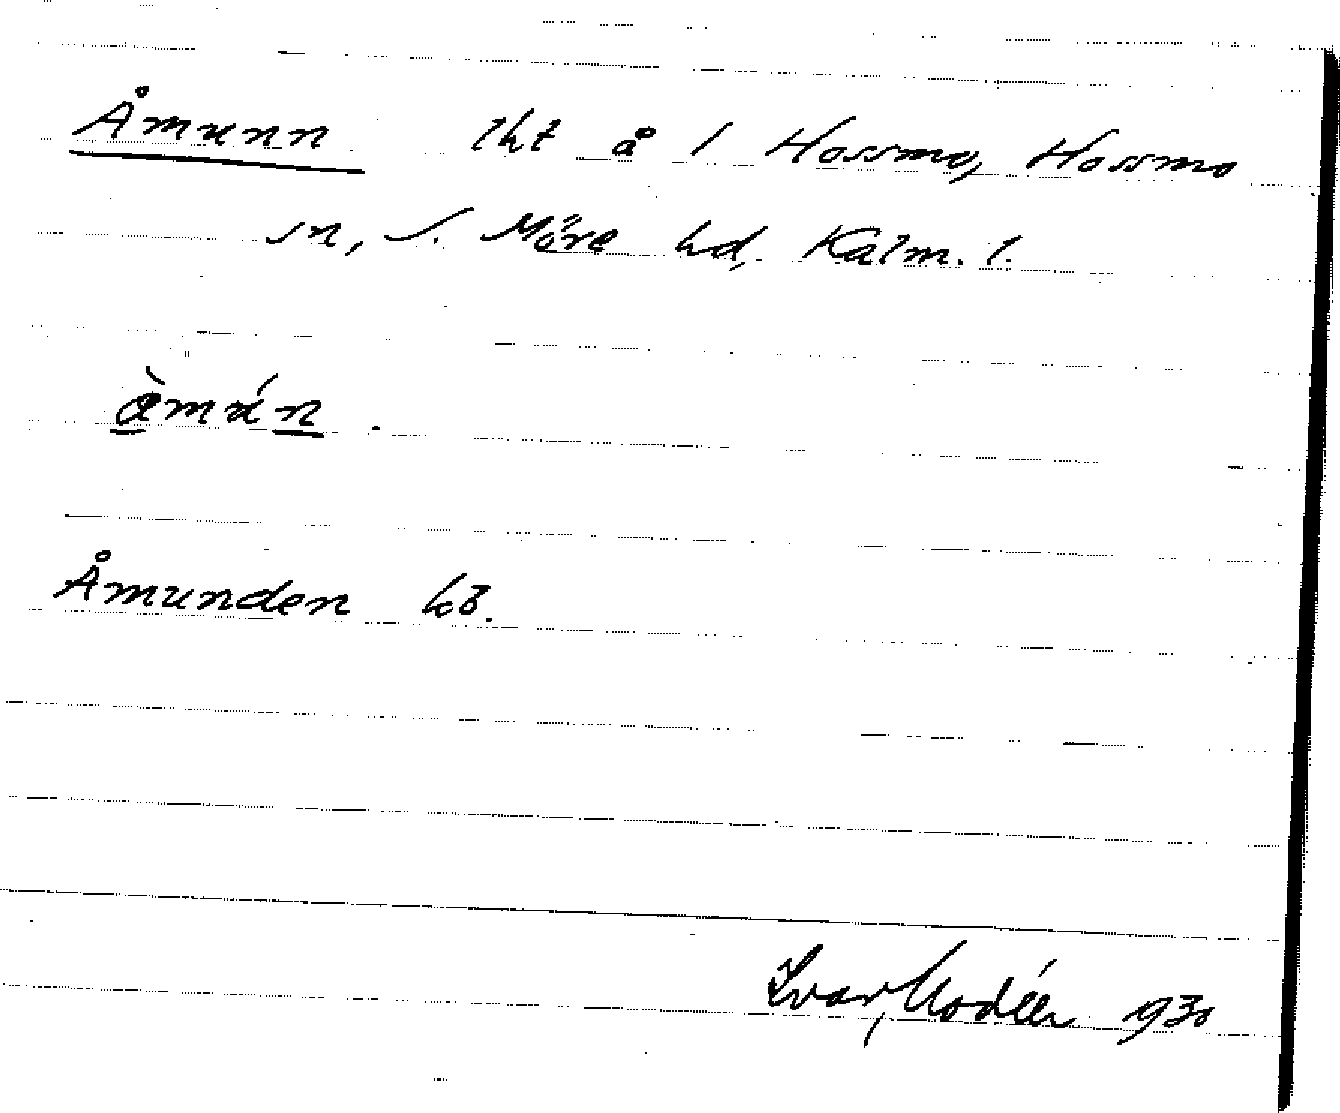 Åmunn lht å 1 Hossmo, Hossmo
sn, S. Möre hd, Kalm. l.
àmún.
Åmunden kb.
Ivar Modéer 1930